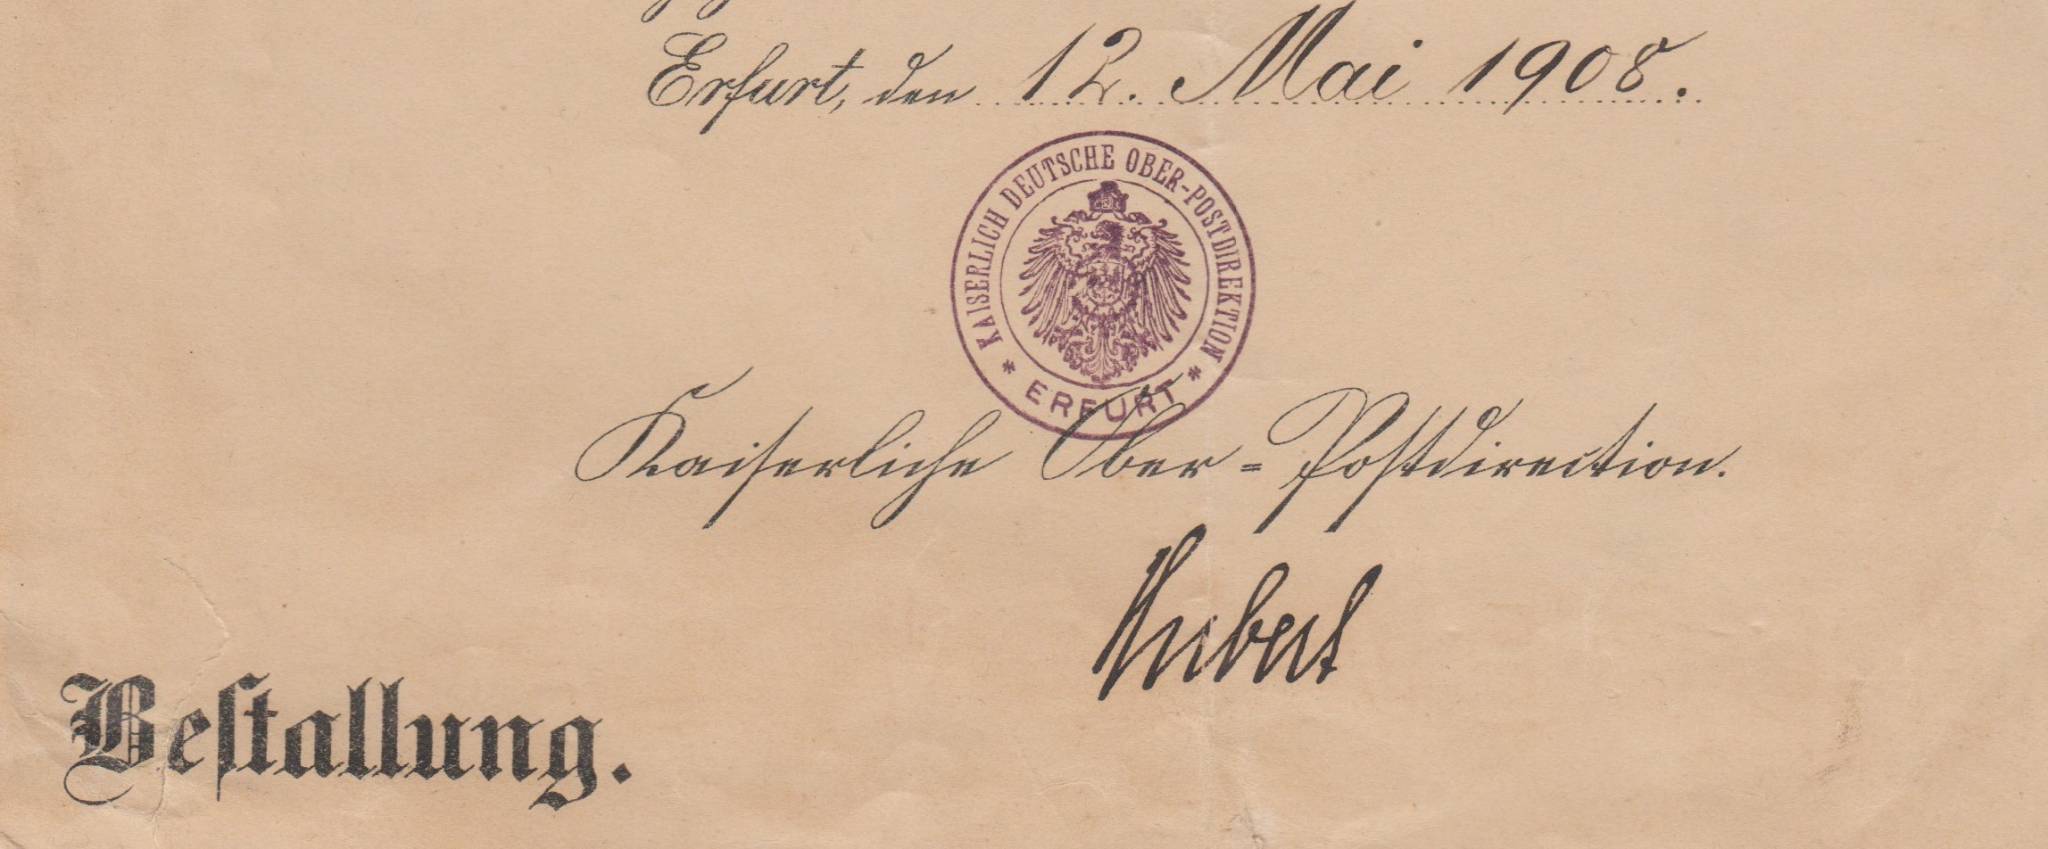 Erfurt, den 12. Mai 1908.
KAISERLICH DEUTSCHE OBER-POSTDIREKTION
* ERFURT *
Kaiserliche Ober-Postdirection.
Beſtallung.